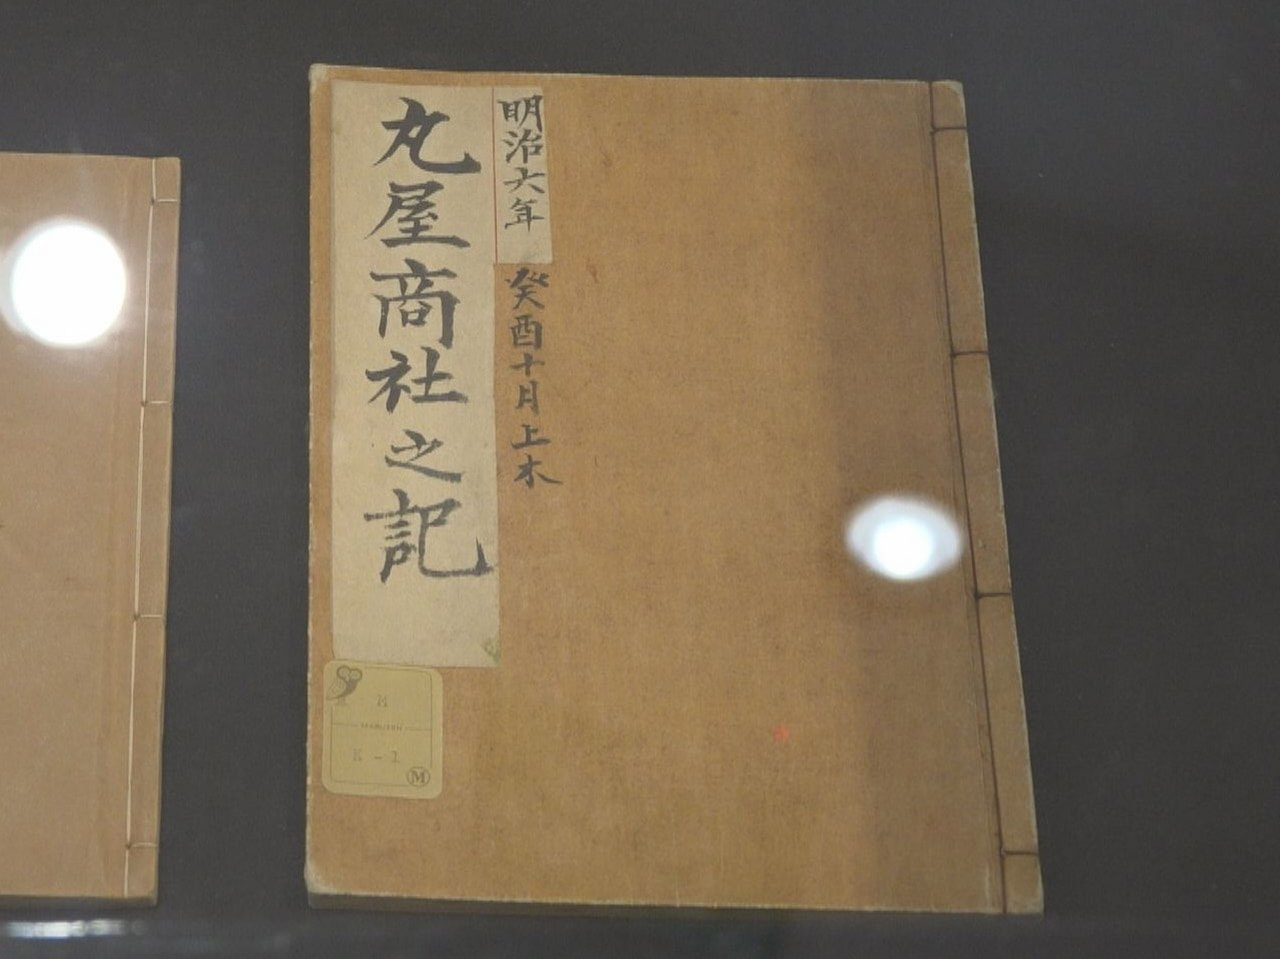 明治六年
癸酉十月上木
丸屋商社之記
M